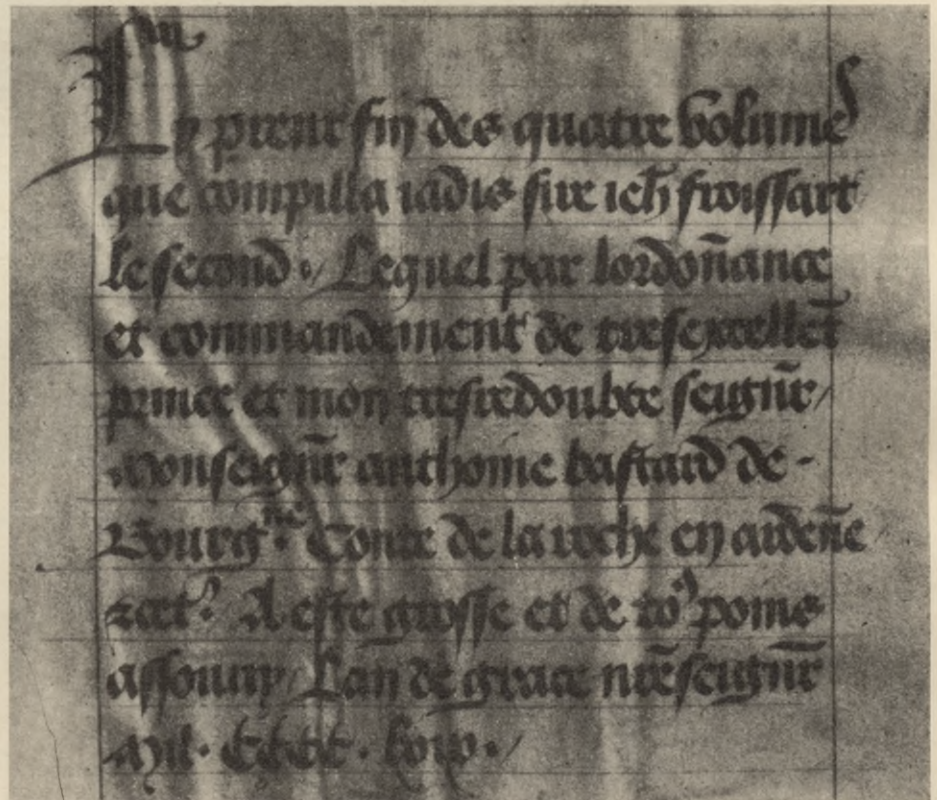 Icy prent fin des quatre volumes
que compilla iadis sire ieh̄ froissart
le second. Lequel par lordon̄ance
et commandement de tresexcellēt
prince et mon tresredoubte seign̄r/
Monseign̄r anthoine bastard de -
Bourgne. Conte de la roche en arden̄e
A este grosse et de to9 poins
assouuy Lan de grace nr̄e seign̄r
Mil. CCCC. lxviij./